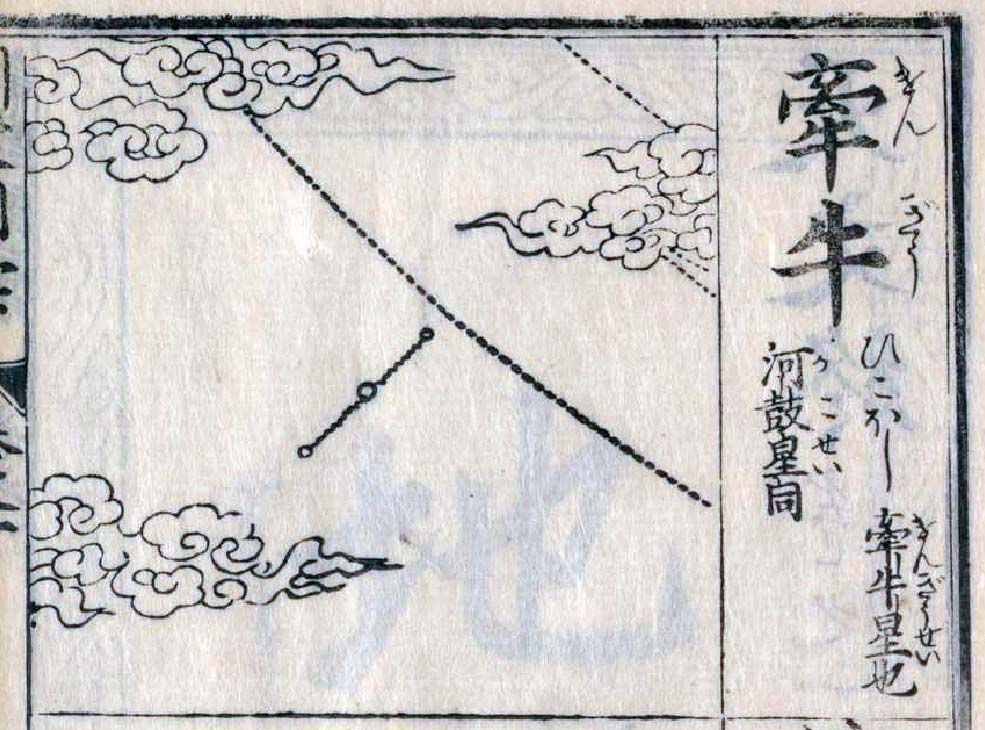 牽牛
ぎん
ぎう
ひこほし
牽牛星也
ぎんぎうせい
河鼓星同
かこせい